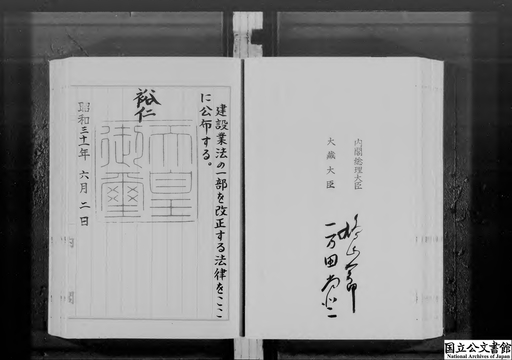 内閣総理大臣
大蔵大臣
一万田尚登
建設業法の一部を改正する法律をここ
に公布する。
裕仁
天皇
御璽
昭和三十一年 六月 二日
国立公文書館
National Archives of Japan